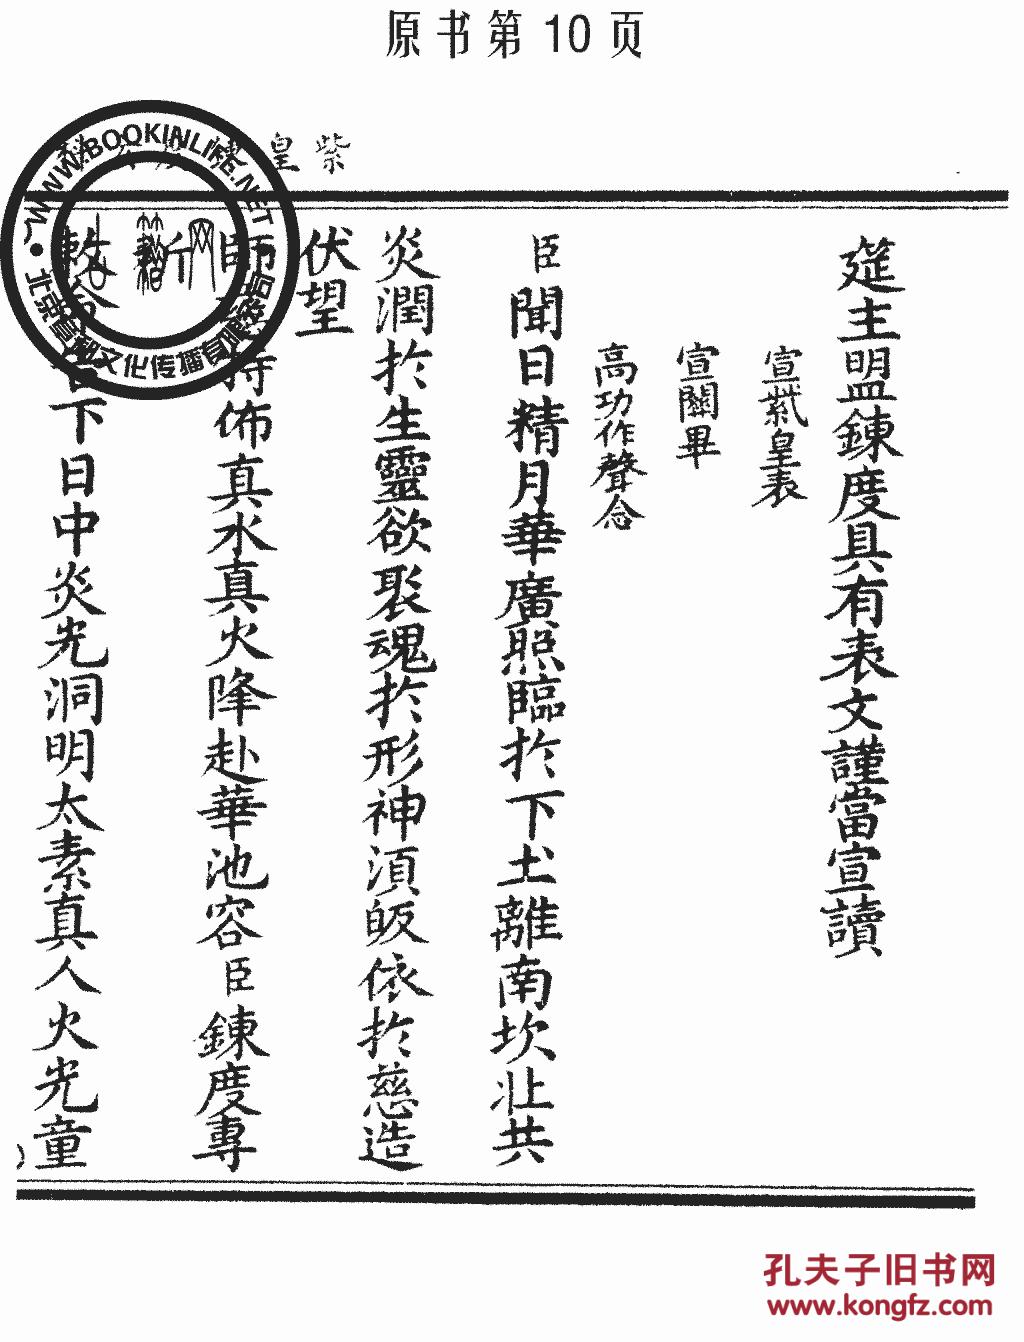 原书第10页
紫皇
筵主盟鍊度具有表文謹當宣讀
宣紫皇表
宣關畢
高功作聲念
臣聞日精月華廣照臨於下土離南坎北共
炎潤於生靈欲聚魂於形神須皈依於慈造
伏望
師 持佈真水真火降赴華池容臣鍊度專
敕 下日中炎光洞明太素真人火光童
WWW.BOOKINLIFE.NET
文化传播有限公司
孔夫子旧书网
www.kongfz.com